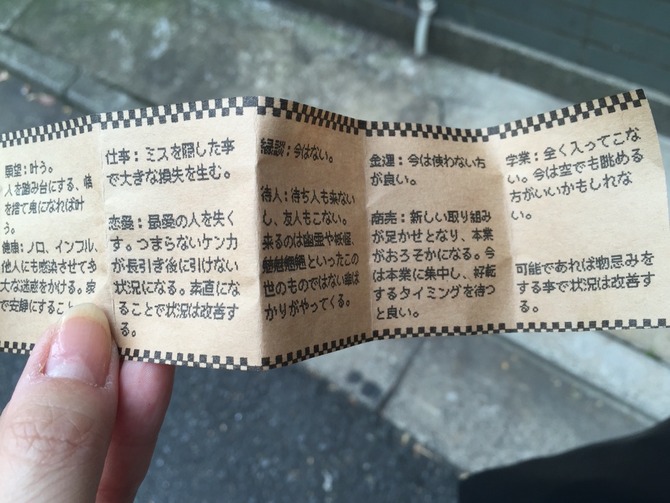 願望：叶う。
人を踏み台にする、情
を捨て鬼になれば叶
う。
健康：ノロ、インフル、
他人にも感染させて多
大な迷惑をかける。家
で安静にすること
仕事：ミスを隠した事
で大きな損失を生む。
恋愛：最愛の人を失く
す。つまらないケンカ
が長引き後に引けない
状況になる。素直にな
ることで状況は改善す
る。
縁談：今はない。
待人：待ち人も来ない
し、友人もこない。
来るのは幽霊や妖怪、
魑魅魍魎といったこの
世のものではない輩ば
かりがやってくる。
金運：今は使わない方
が良い。
商売：新しい取り組み
が足かせとなり、本業
がおろそかになる。今
は本業に集中し、好転
するタイミングを待つ
と良い。
学業：全く入ってこな
い。今は空でも眺める
方がいいかもしれな
い。
可能であれば物忌みを
する事で状況は改善す
る。